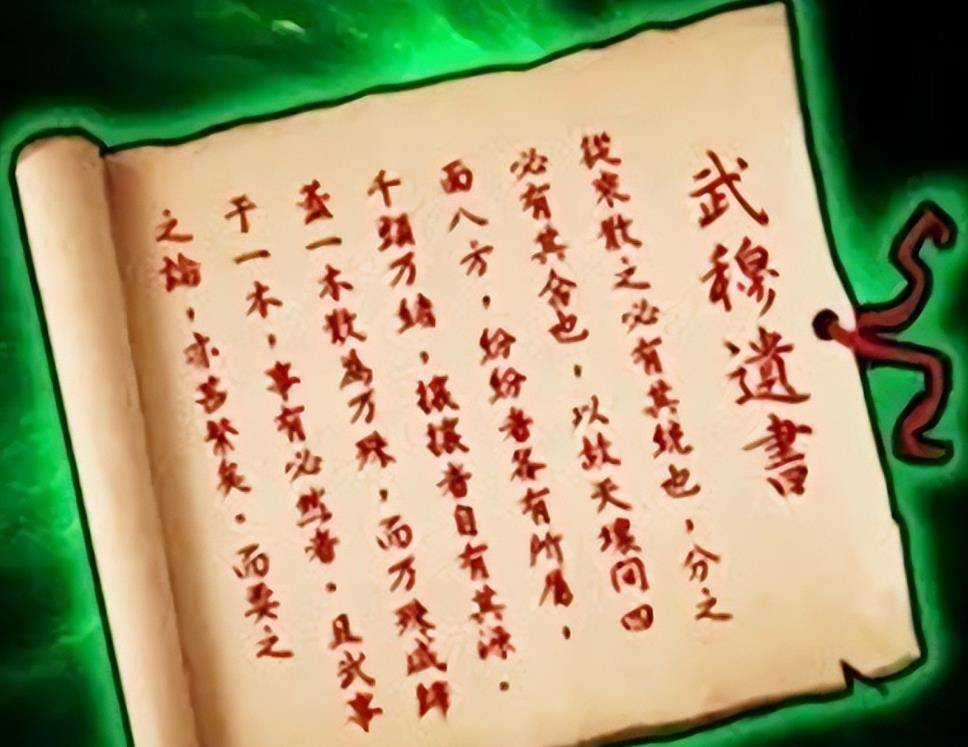 武穆遺書
從來散之必有其统也，分之
必有其合也，以故天壤间四
面八方，纷纷者各有所属，
千頭万绪，攘攘者自有其源．
蓋一本散為万殊，而万殊咸歸
于一本，事有必然者．且武事
之論，亦甚繁矣．而要之